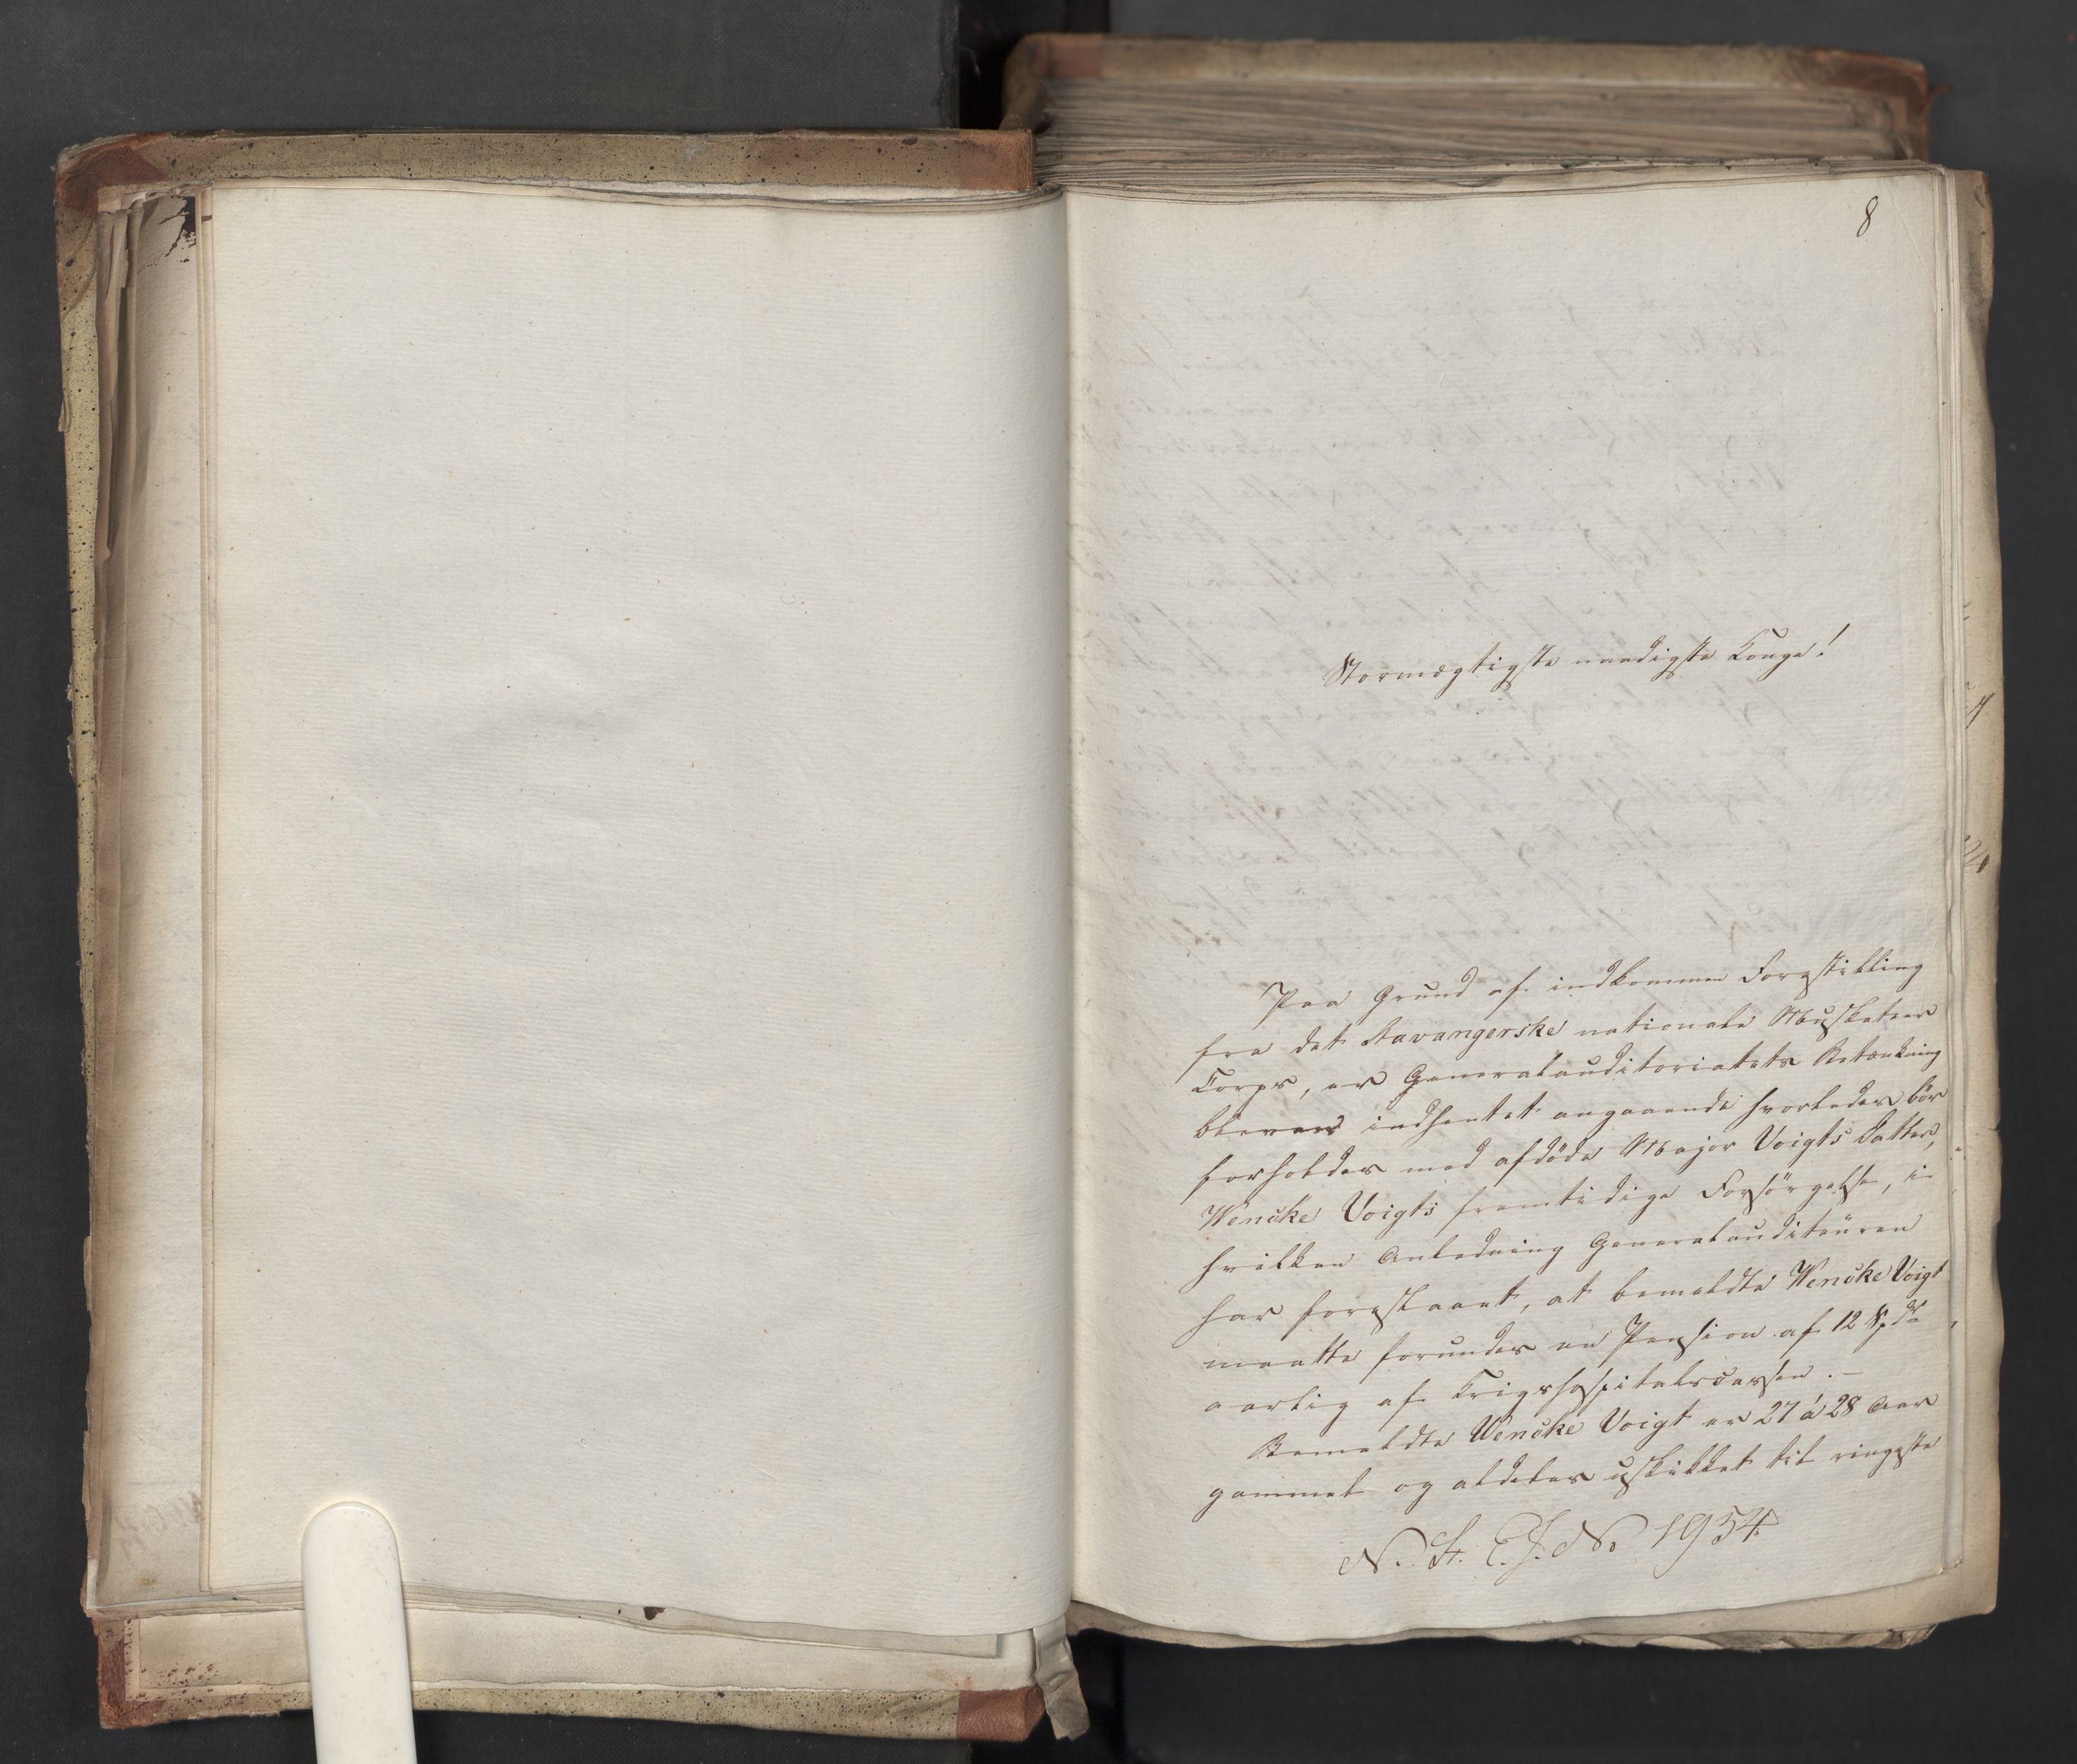 8
Stormægtigste naadigste Konge!
Paa Grund af indkommen Forestilling
fra det Stavangerske nationale Musketeer
Corps, er Generalauditoriatets Betænkning
bleven indhentet angaaende hvorledes bör
forholdes med afdöde Major Voigts Datter,
Wencke Voigts fremtidige Forsörgelse, i
hvilken Anledning Generalauditeuren
har foreslaaet, at bemeldte Wencke Voigt
maatte forundes en Pension af 12 Spdr
aarlig af Krigshospitalscassen. –
Bemeldte Wencke Voigt er 27 á 28 Aar
gammel og aldeles uskikket til ringeste
N. St. C. J. No 1954